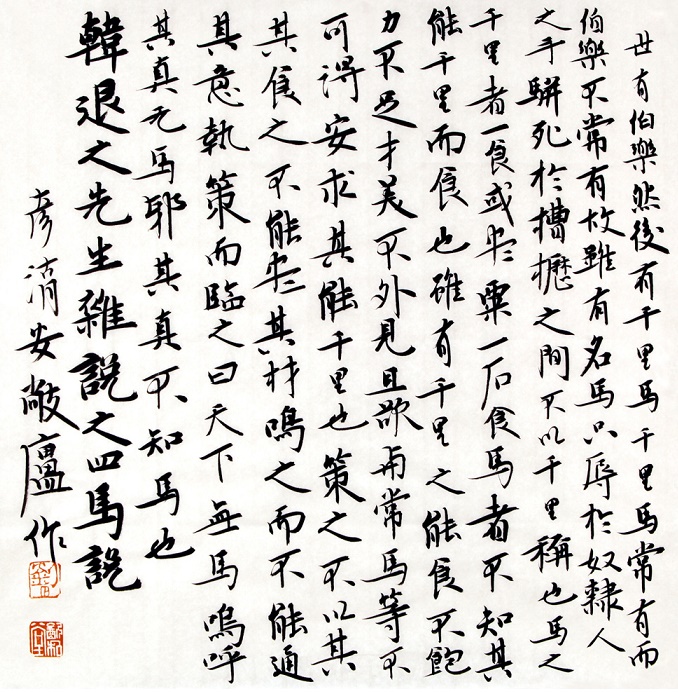 世有伯樂然後有千里馬千里馬常有而
伯樂不常有故雖有名馬只辱於奴隸人
之手駢死於槽櫪之間不以千里稱也馬之
千里者一食或尽粟一石食馬者不知其
能千里而食也雖有千里之能食不飽
力不足才美不外見且欲與常馬等不
可得安求其能千里也策之不以其
其食之不能尽其材鳴之而不能通
其意執策而臨之曰天下無馬嗚呼
其真无馬邪其真不知馬也
韓退之先生雜說之四馬說
彥清安敞廬作